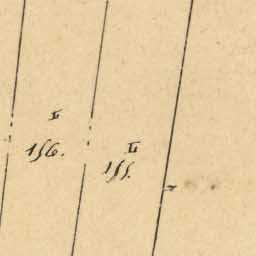 II
156.
II
155.